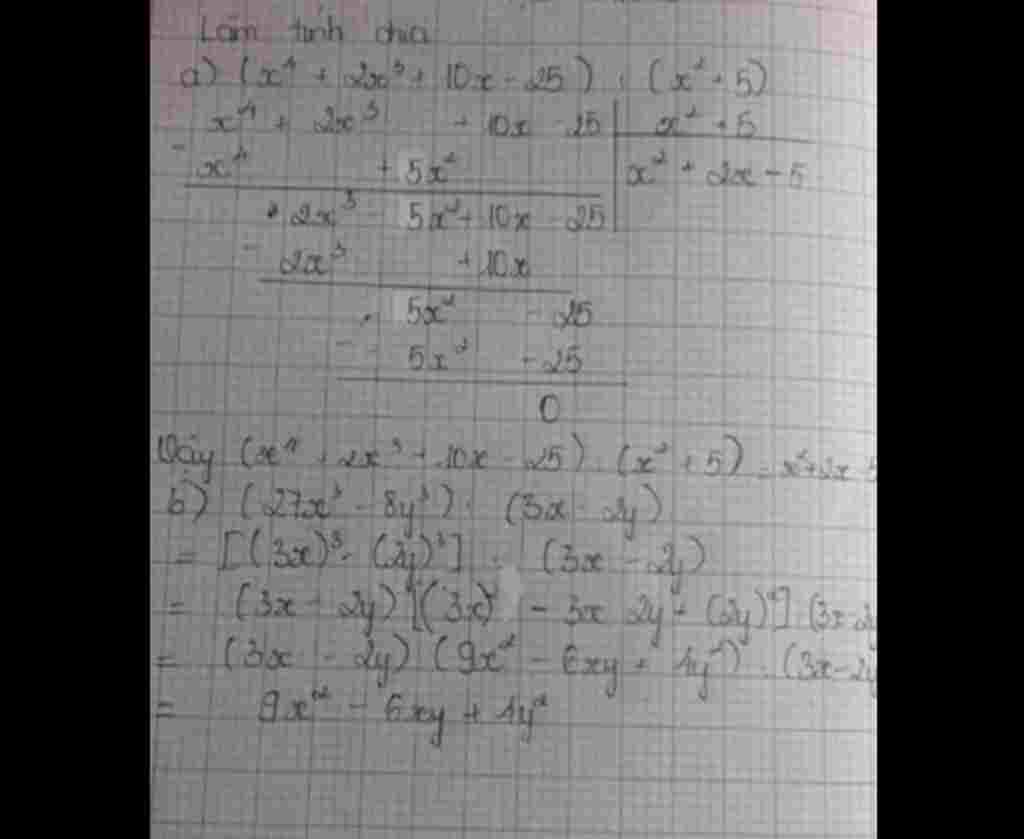 Làm tính chia
a) (x⁴ + 2x³ + 10x - 25) : (x² + 5)
x⁴ + 2x³ + 10x - 25 | x² + 5
- x⁴ + 5x² | x² + 2x - 5
2x³ - 5x² + 10x - 25
- 2x³ + 10x
- 5x² - 25
- - 5x² - 25
0
Vậy (x⁴ + 2x³ + 10x - 25) : (x² + 5) = x² + 2x - 5
b) (27x³ - 8y³) : (3x - 2y)
= [(3x)³ - (2y)³] : (3x - 2y)
= (3x - 2y) [(3x)² - 3x 2y + (2y)²] : (3x - 2y
= (3x - 2y) (9x² - 6xy + 4y²) : (3x - 2y
= 9x² - 6xy + 4y²